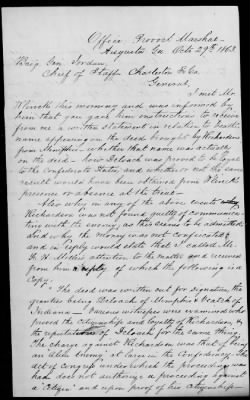 Office Provost Marshal
Augusta Ga Octr 29th 1863.
Brig Gen Jordan,
Chief of Staff Charleston So Ca.
General,
I met Mr
this morning and was informed by
him that you gave him instructions to receive
from me a written statement in relation to
name appearing on the deed brought by Richardson
from Memphis, whether that name was actually
on the deed - how DeLoach was proved to be loyal
to the Confederate States, and whether or not the same
result would have been attained from
presence or absence at the trial.
Also why in any of the above events
Richardson was not found guilty of communica-
ting with the enemy, as this seems to be admitted,
and why the money was not confiscated
and in reply would state that I called Mr
attention to the matter and received
from him a reply of which the following is a
Copy.
"The deed was written out for signature, the
grantees being DeLoach of Memphis & Veatch of
Indiana - Various witnesses were examined who
proved the citizenship and loyalty of Richardson, &
the reputation of DeLoach for the same thing.
The charge against Richardson was that of being
an alien enemy at large in the Confederacy. The
act of congress under which the proceeding was
had does not authorize a proceeding against
a "citizen" and upon proof of his citizenship